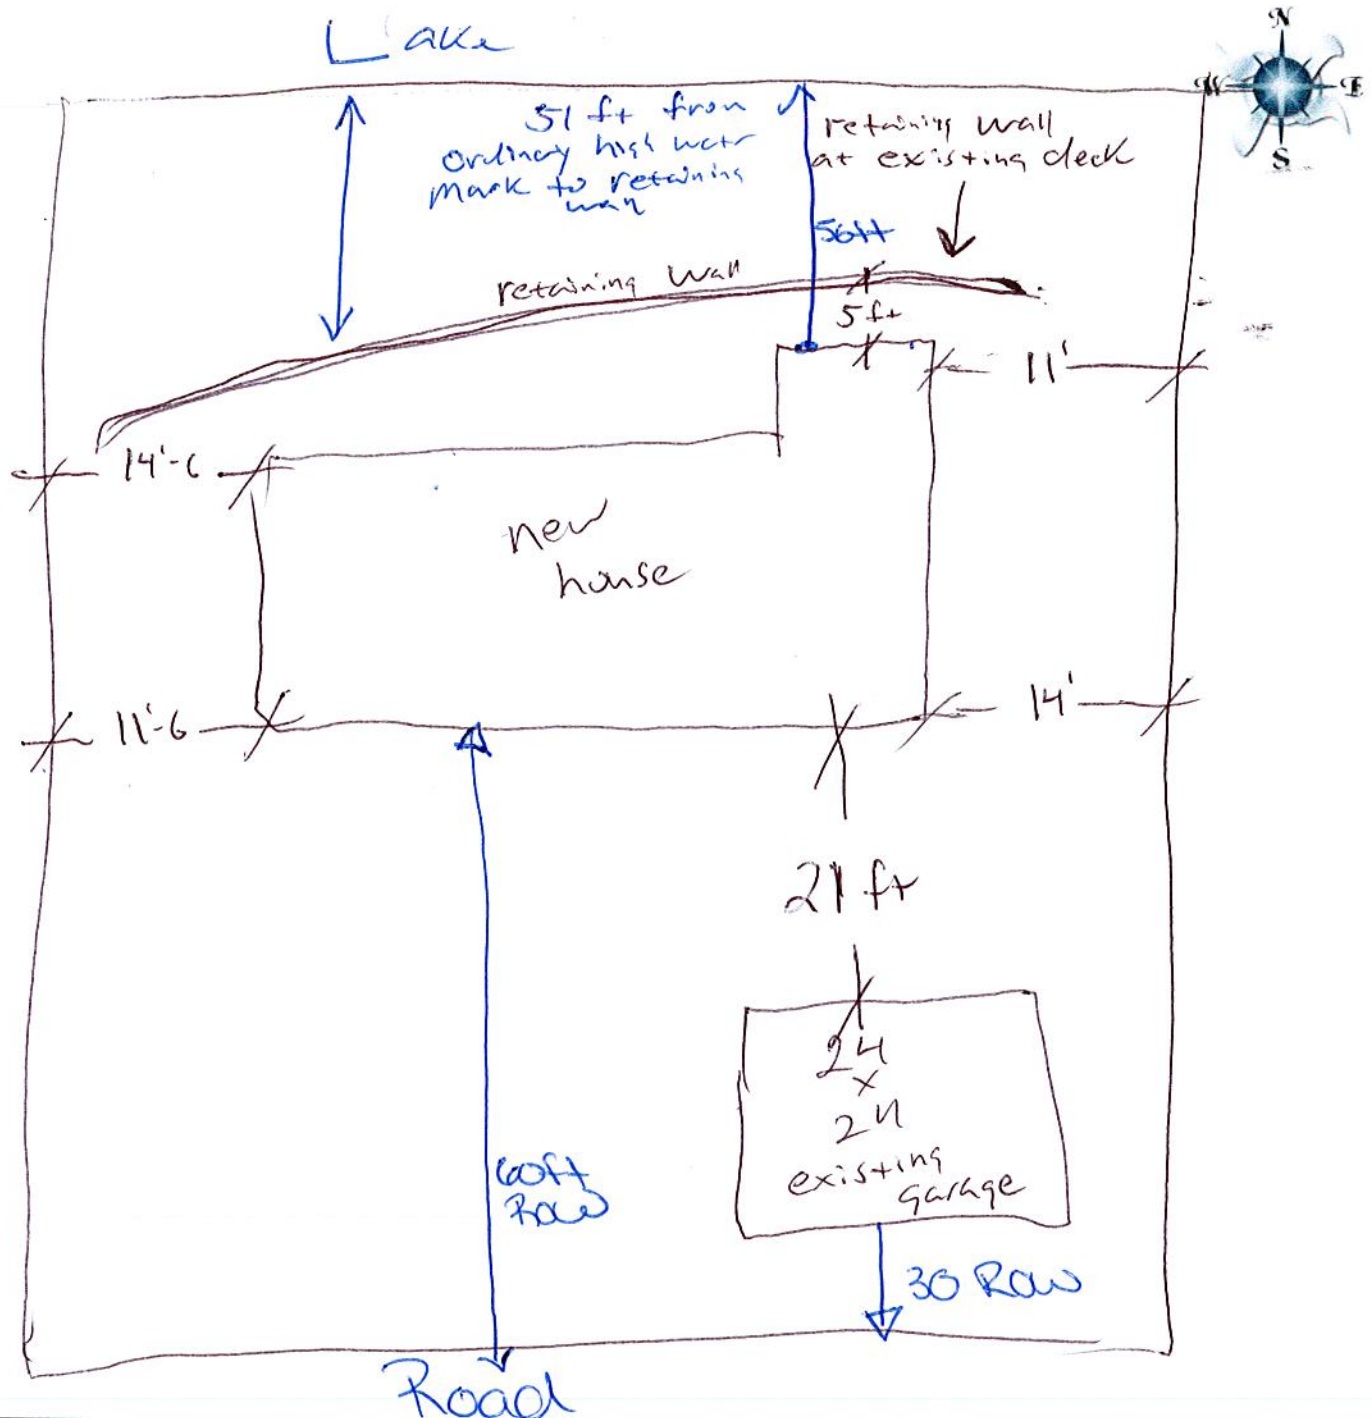 Lake
N
W
E
S
51 ft from
ordinary high watr
mark to retaining
wall
retaining wall
at existing deck
56ft
retaining wall
5 ft
11'
14'-6
new
house
11'-6
14'
21 ft
24
x
24
existing
garage
60ft
Row
30 Row
Road